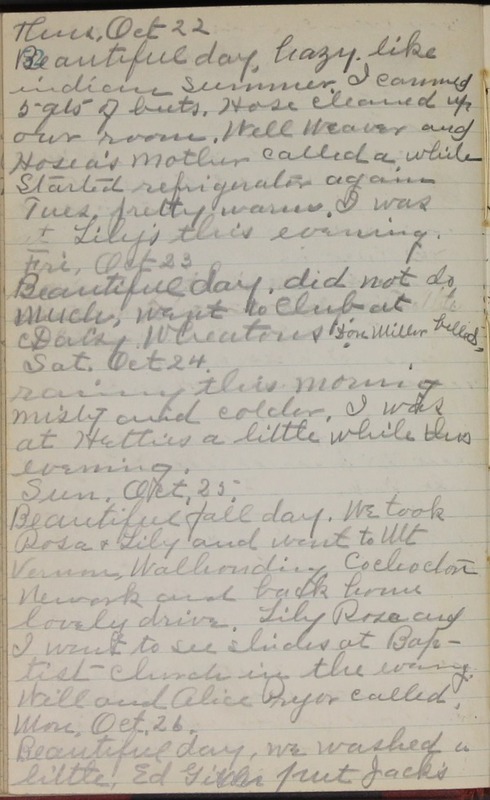 Thurs, Oct 22
Beautiful day, hazy. like
indian Summer. I canned
5 qts of buts. Hose cleaned up
our room. Will Weaver and
Hosea's Mother called a while
Started refrigerator again
Tues, pretty warm. I was
at Lily's this evening.
Fri, Oct 23
Beautiful day. did not do
much, went to Club at
Daisy Wheatons. Don Miller
Sat. Oct 24.
rainy this morning
misty and colder. I was
at Hetties a little while this
evening.
Sun. Oct, 25.
Beautiful fall day. We took
Rosa & Lily and went to Mt
Vernon, Walhonding Cochocton
Newark and back home
lovely drive. Lily Rosa and
I went to see slides at Bap-
tist church in the evening.
Will and Alice Pryor called,
Mon, Oct, 26.
Beautiful day, we washed a
little, Ed put Jack's